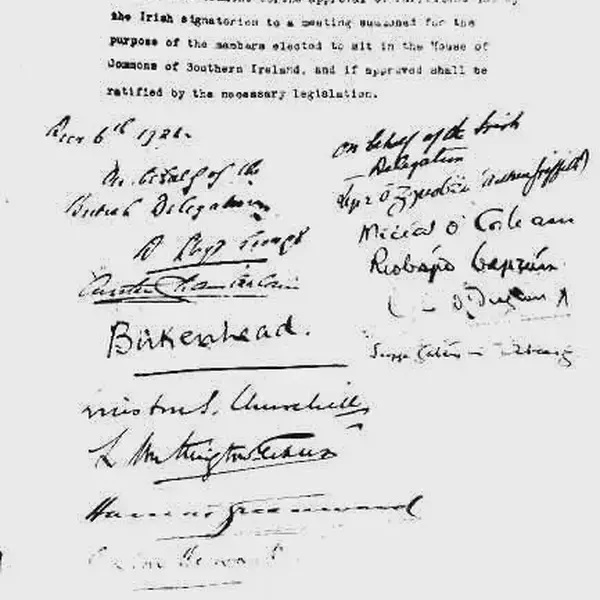 the approval
the Irish signatories to a meeting summoned for the
purpose of the members elected to sit in the House of
Commons of Southern Ireland, and if approved shall be
ratified by the necessary legislation.
Decr 6th 1921.
On behalf of the
British Delegation
D Lloyd George
Austen Chamberlain
Birkenhead.
Winston S. Churchill
L Worthington-Evans
Hamar Greenwood
Gordon Hewart
On behalf of the Irish
Delegation
(Arthur Griffith)
Micheál Ó Coileain
Riobárd Bartún